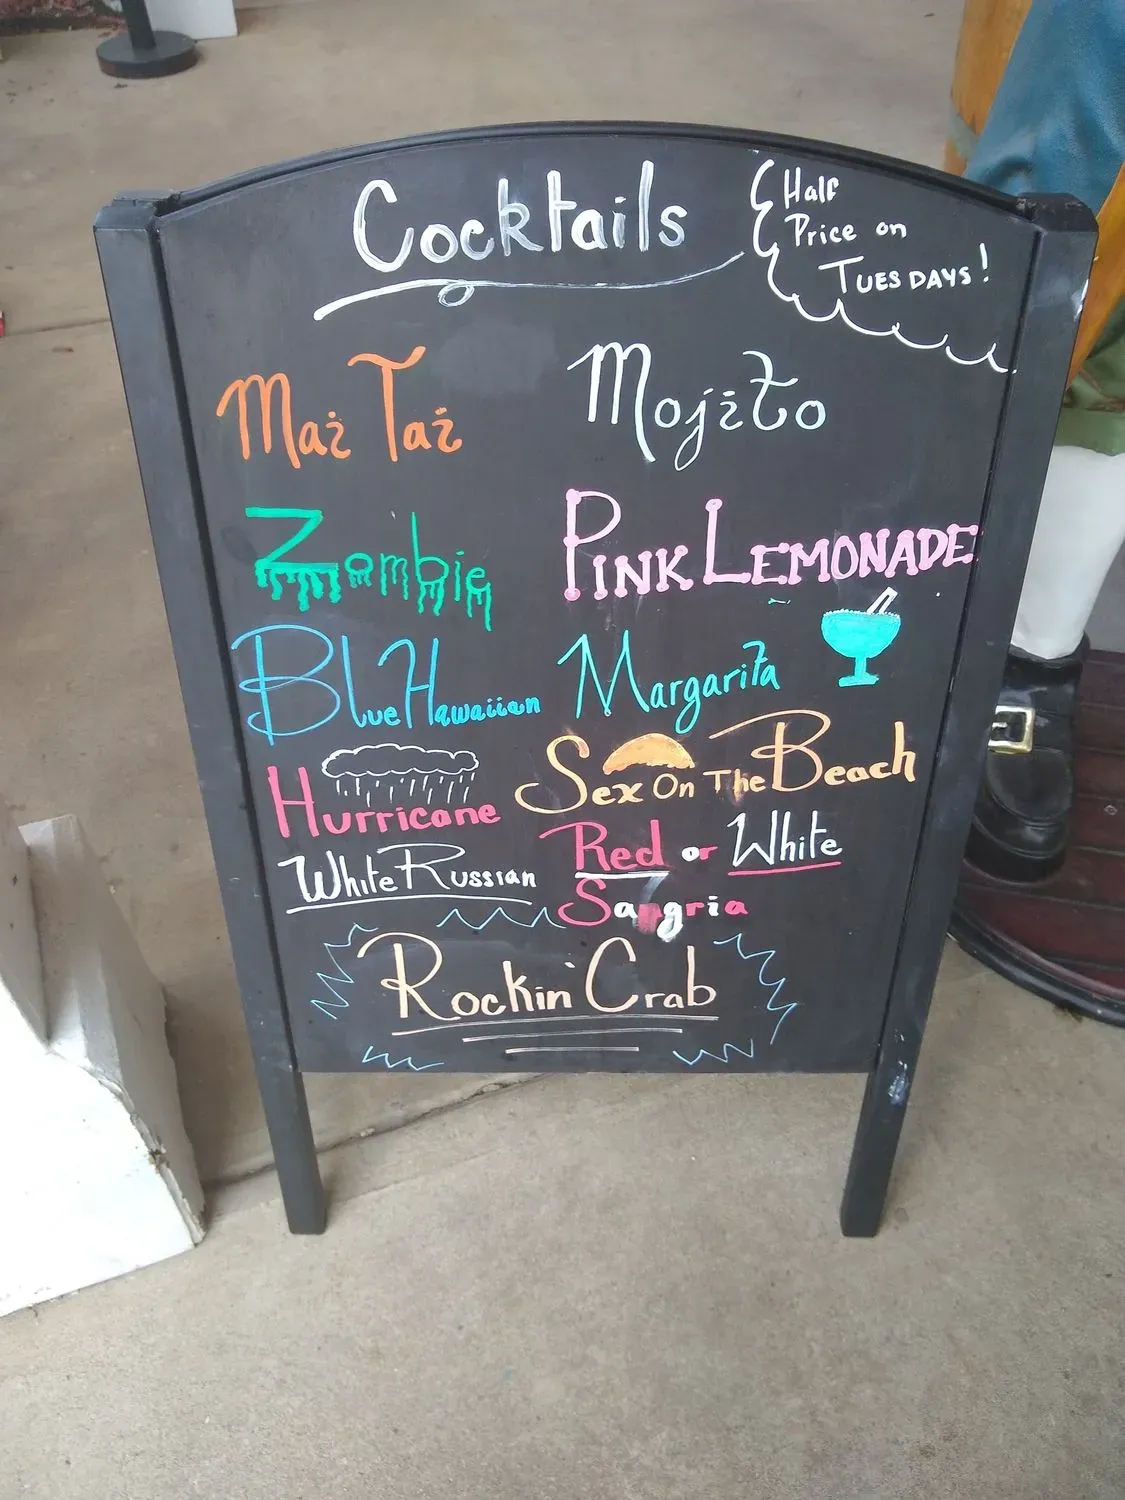 Cocktails
Half
Price on
TUESDAYS!
Mai Tai
Mojito
Zombie
PINK LEMONADE
Blue Hawaiian
Margarita
Hurricane
Sex On The Beach
White Russian
Red or White
Sangria
Rockin' Crab